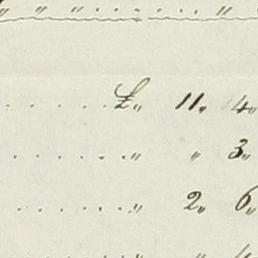 " " " . . . . " "
. . . . . . £ " 11 " 4 "
. . . . . . . " " 3 "
. . . . . . . " 2 " 6 "